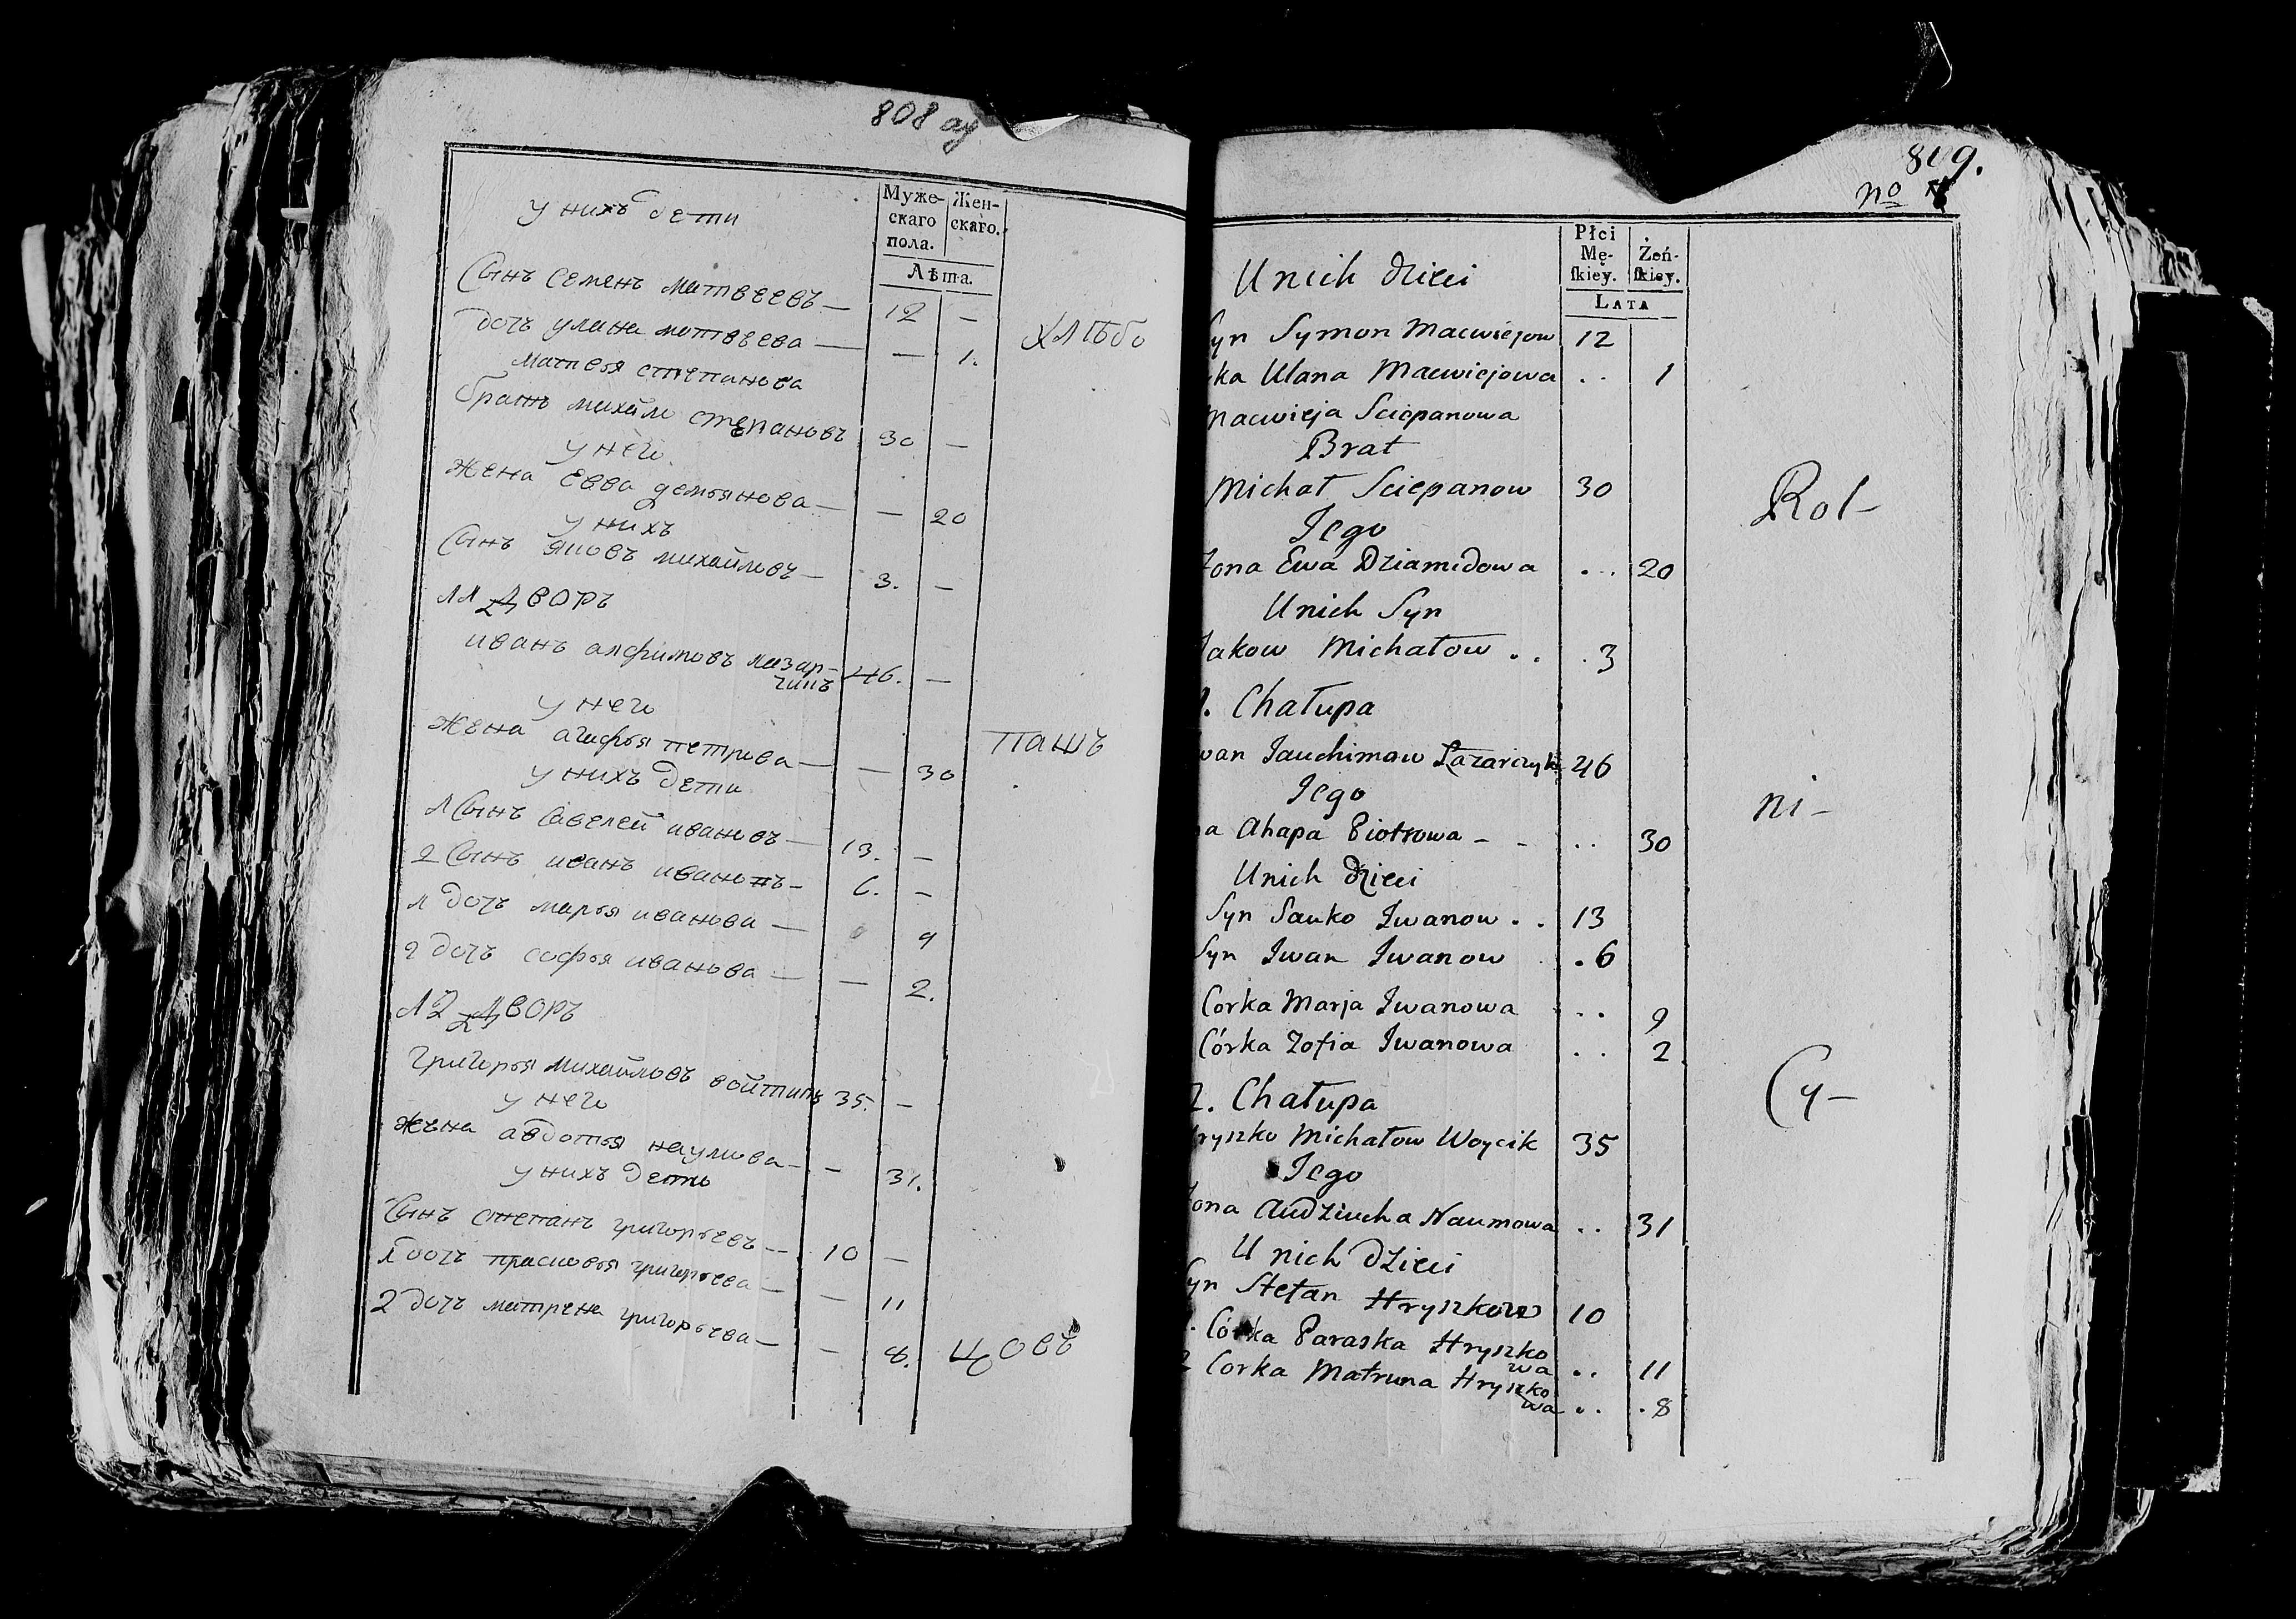 808 об
у нихъ дети
Муже-
скаго
пола.
Жен-
скаго.
Лѣта.
Сынъ семенъ матвеевъ — 12 —
дочь улана матвеева — — 1.
хлѣбо
матвея степанова
братъ михайло степановъ 30 —
у него
жена евва демьянова — — 20
у нихъ
Сынъ яковъ михайловъ — 3. —
11 дворъ
иванъ алфимовъ лазар-
чикъ 46. —
у него
жена агафья петрова — — 30
пашъ
у нихъ дети
1 Сынъ савелей ивановъ — 13. —
2 Сынъ иванъ ивановъ — 6. —
1 дочь марья иванова — 9
2 дочь софья иванова — — 2.
12 дворъ
григорья михайловъ войтикъ 35. —
у него
жена авдотья наумова — — 31.
у нихъ дети
Сынъ степанъ григорьевъ — 10 —
1 дочь прасковья григорьева — — 11
2 дочь матрена григорьева — — 8.
цовъ
809.
no
Płci
Mę-
ſkiey.
Żeń-
ſkiey.
LATA
Unich dzieci
Syn Symon Macwiejow 12
ka Ulana Macwiejowa .. 1
Macwieja Sciepanowa
Brat
Michał Sciepanow 30
Rol-
Jego
Zona Ewa Dziamidowa ... 20
Unich Syn
Jakow Michałow .. . 3
1. Chałupa
wan Jauchimow Łazarczyk 46
Jego
ni-
na Ahapa Piotrowa - - .. 30
Unich dzieci
Syn Sauko Iwanow . . 13
Syn Iwan Iwanow . 6
Corka Marja Iwanowa .. 9
Córka Zofia Iwanowa .. 2
Cy-
2. Chałupa
Hryszko Michałow Woycik 35
Jego
Zona Audziucha Naumowa .. 31
U nich dzieci
Syn Stefan Hryszkow 10
Córka Paraska Hryszko
wa .. 11
2 Corka Matruna Hryszko
wa .. . 8